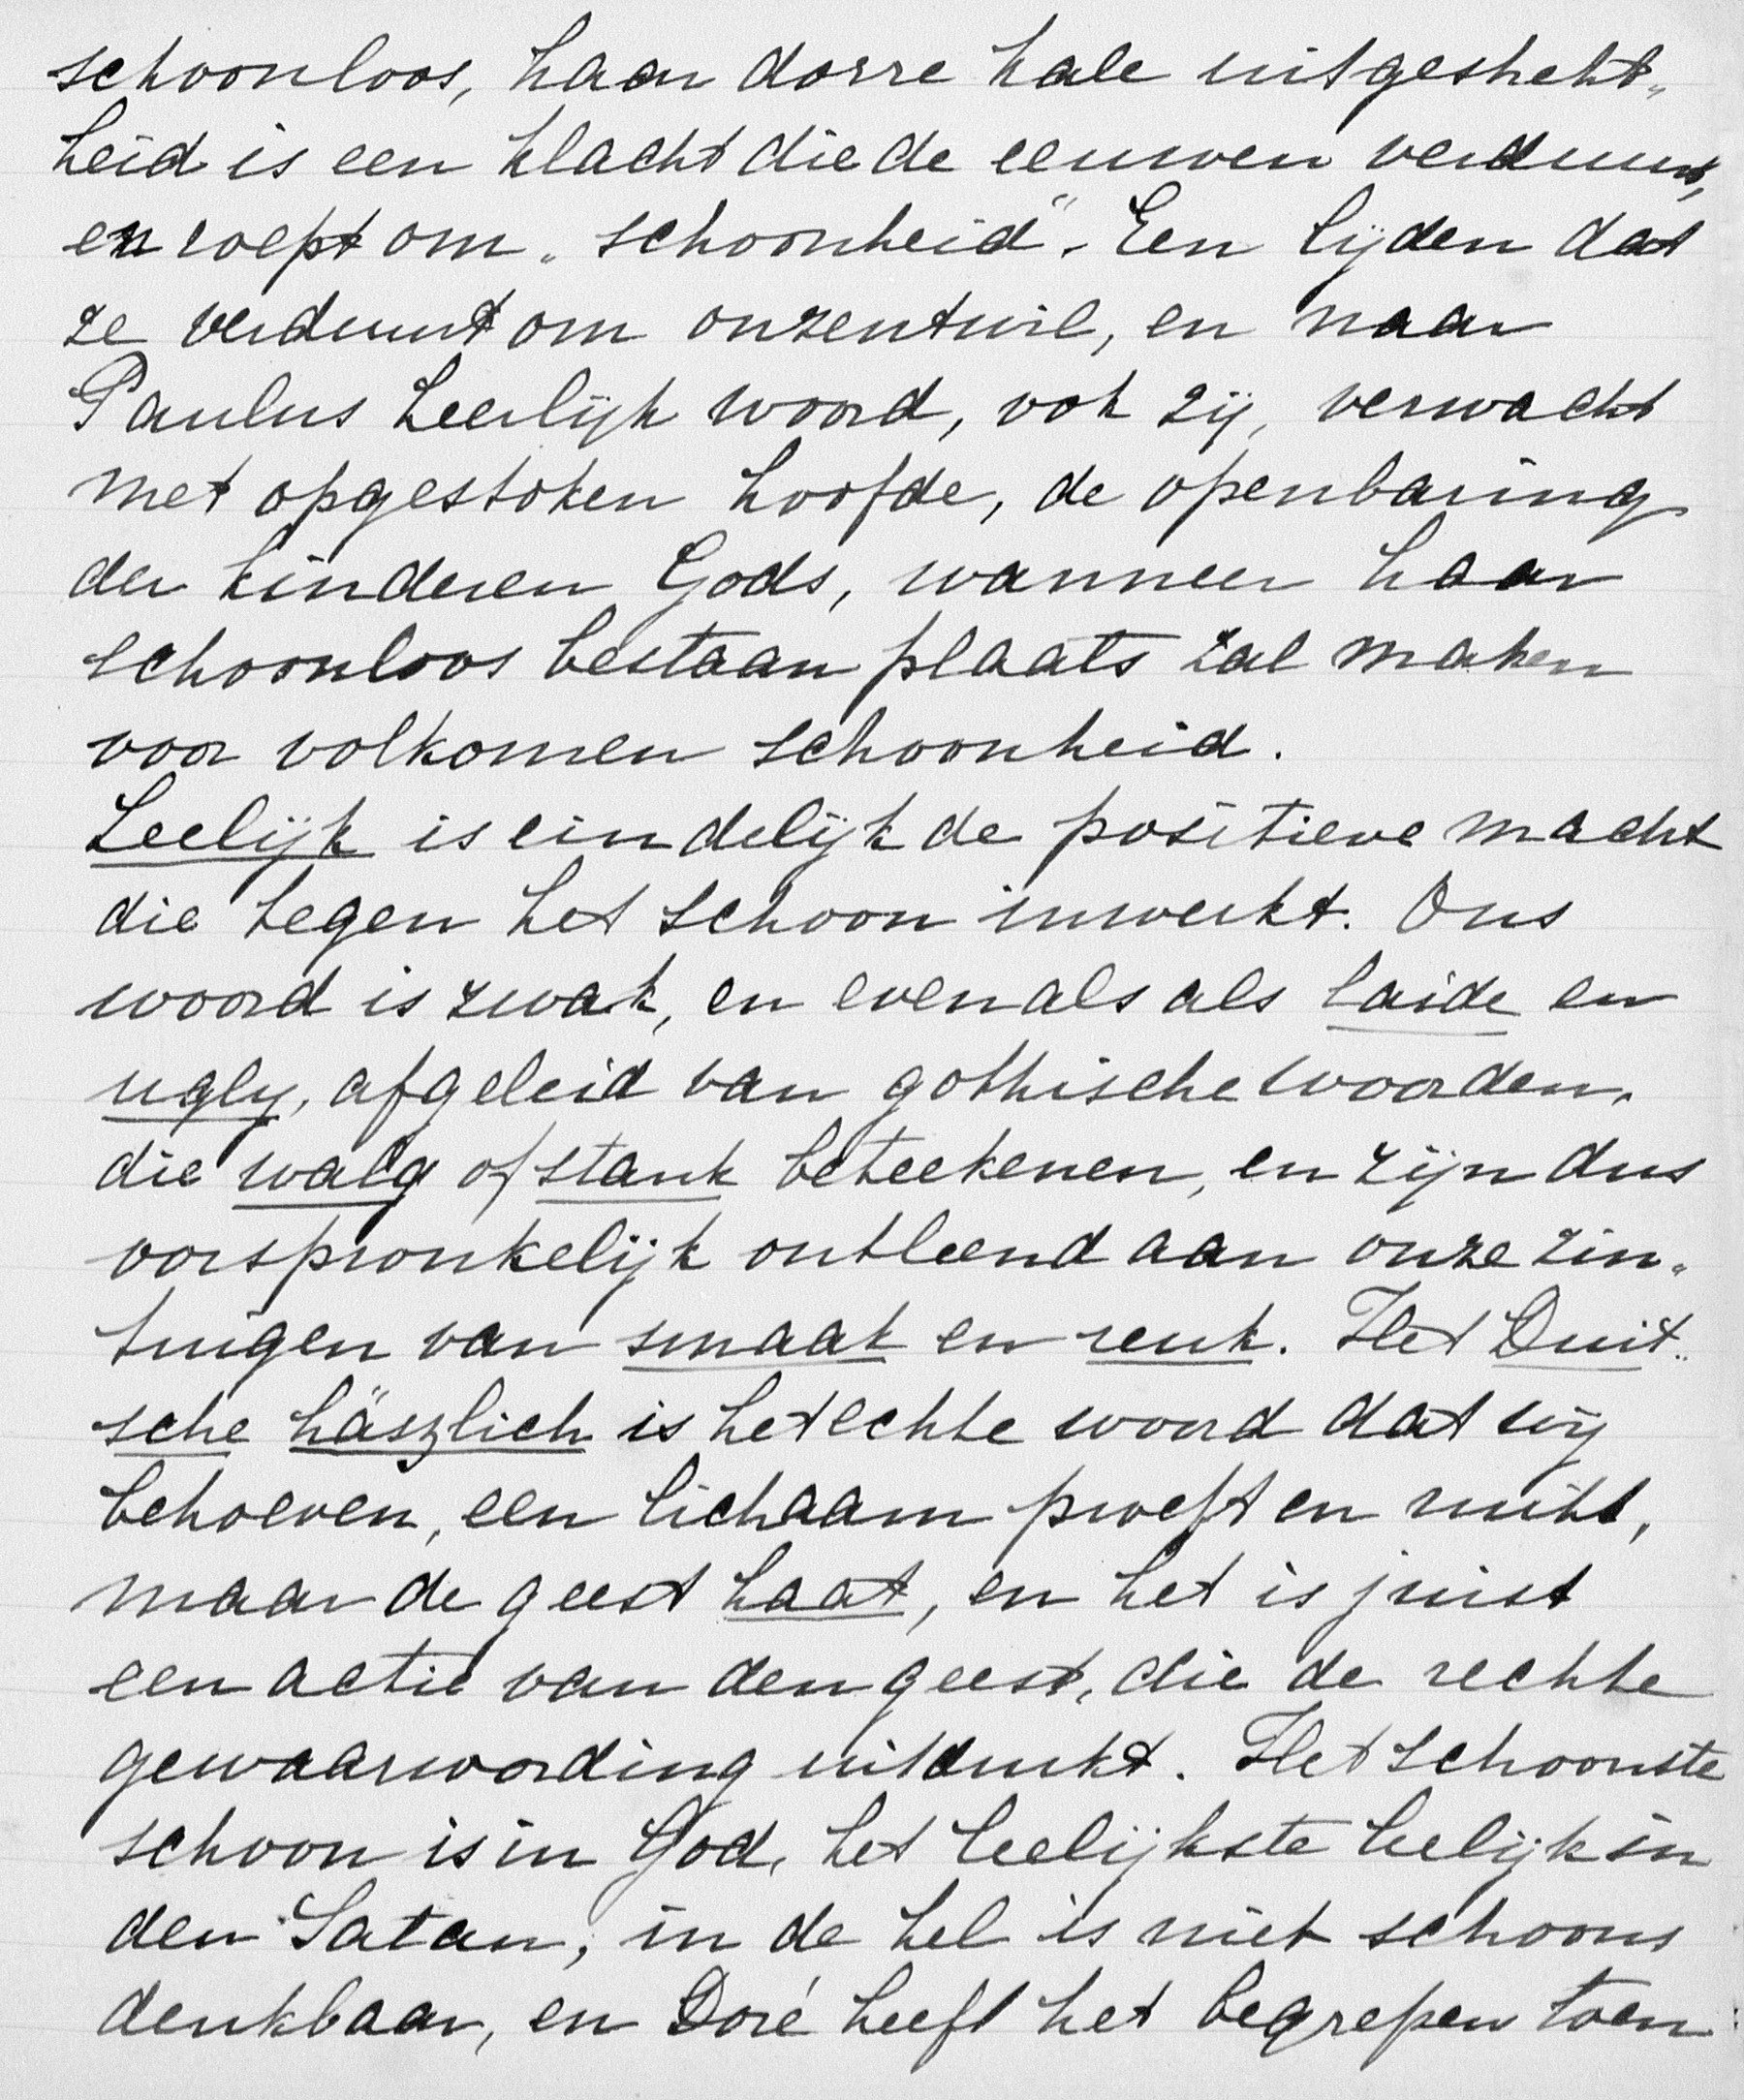 schoonloos, haar dorre kale uitgestrekt„
heid is een klacht die de eeuwen verduurt,
en roept om „schoonheid". Een lijden dat
ze verduurt om onzentwil, en naar
Paulus heerlijk woord, ook zij, verwacht
met opgestoken hoofde, de openbaring
der kinderen Gods, wanneer haar
schoonloos bestaan plaats zal maken
voor volkomen schoonheid.
Leelijk is eindelijk de positieve macht
die tegen het schoon inwerkt. Ons
woord is zwak, en evenals als laide en
ugly, afgeleid van gothische woorden,
die walg of stank beteekenen, en zijn dus
oorspronkelijk ontleend aan onze zin„
tuigen van smaak en reuk. Het Duit„
sche häszlich is het echte woord dat wij
behoeven, een lichaam proeft en ruikt,
maar de geest haat, en het is juist
een actie van den geest, die de rechte
gewaarwording uitdrukt. Het schoonste
schoon is in God, het leelijkste leelijk in
den Satan, in de hel is niet schoons
denkbaar, en Doré heeft het begrepen toen